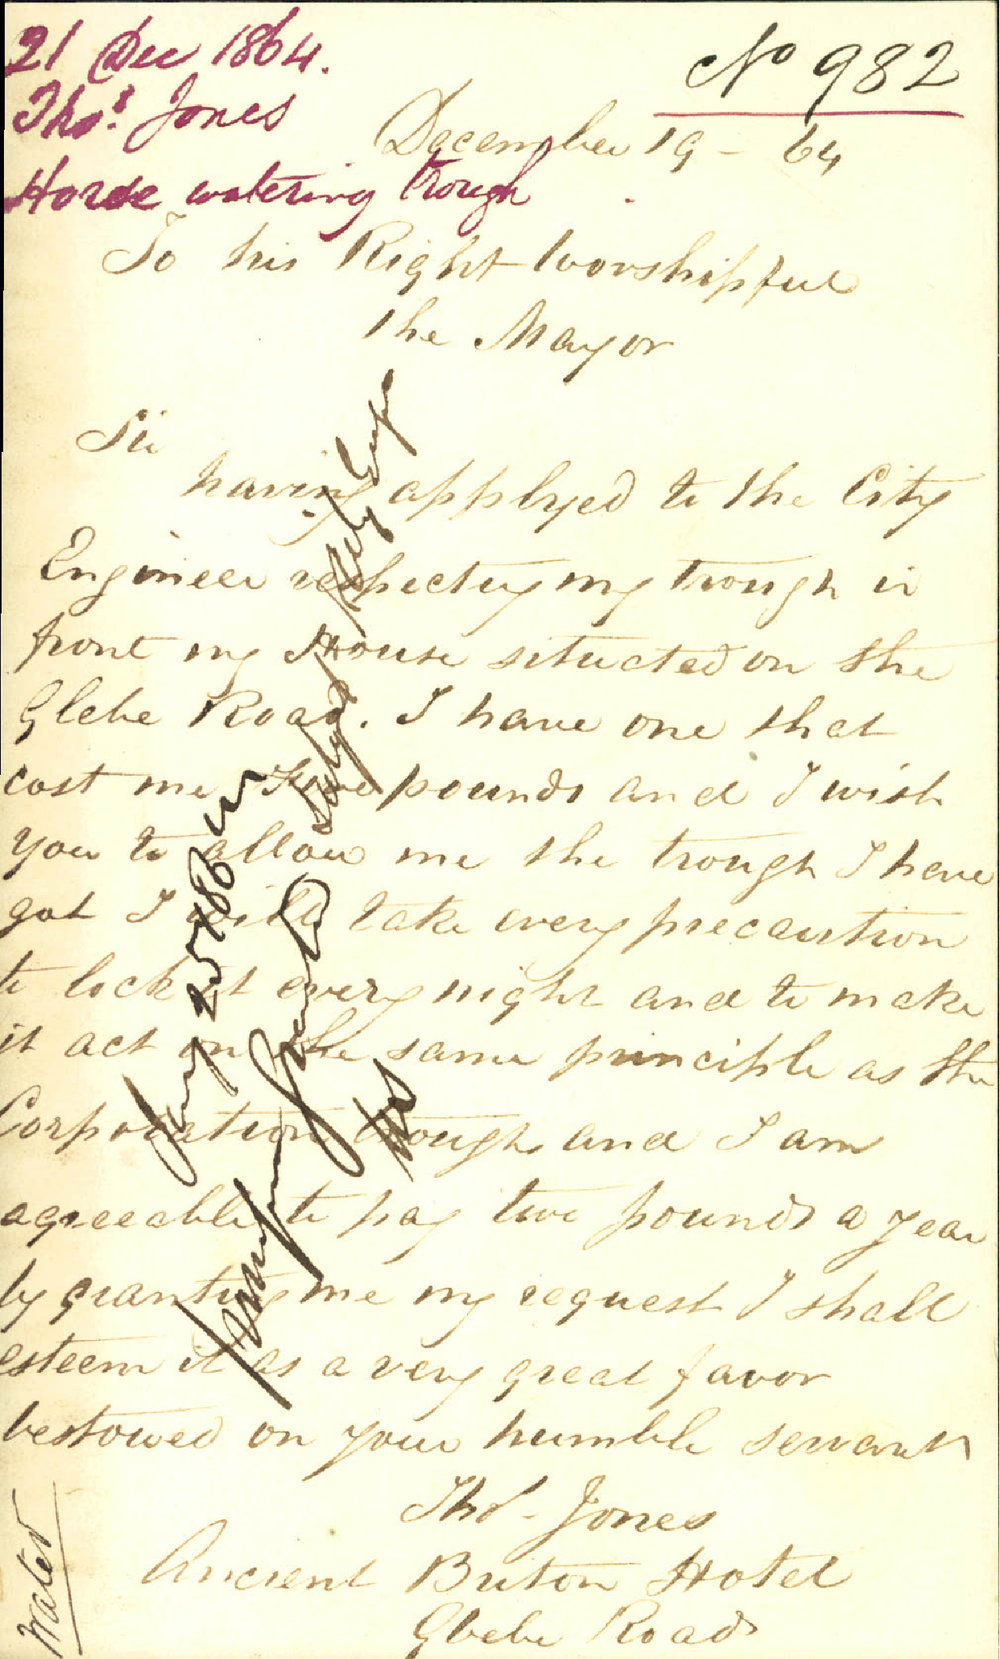 21 Dec 1864.
Thos. Jones
Horse watering trough
No 982
December 19 - 64
To his Right Worshipful
the Mayor
Sir
having applyed to the City
Engineer respecting my trough in
front my House situated on the
Glebe Road. I have one that
cost me Five pounds and I wish
you to allow me the trough I have
got I will take every precaution
to lock it every night and to make
it act on the same principle as the
Corporation trough and I am
agreeable to pay two pounds a year
by granting me my request I shall
esteem it as a very great favor
bestowed on your humble servant
Thos. Jones
Ancient Briton Hotel
Glebe Road
Water
Granted